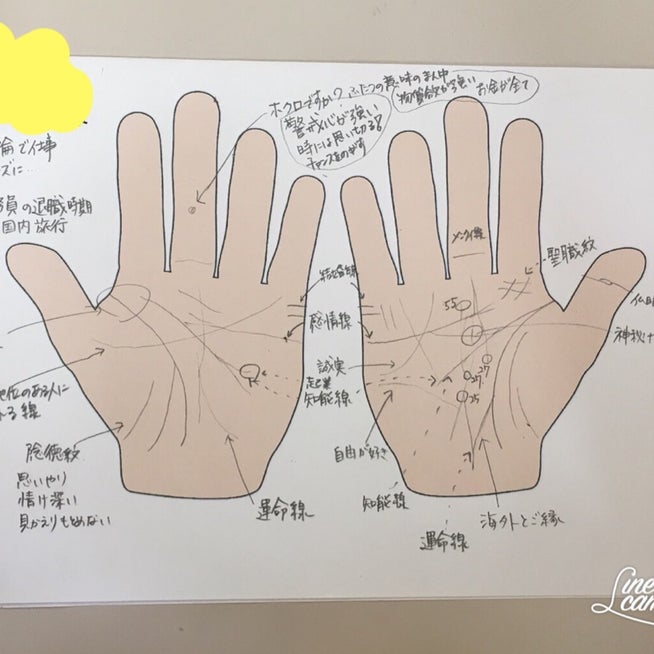 ホクロですか?
ふたつの意味のまん中
警戒心が強い
時には思い切る?
チャンスをのがす
物質欲が強い
お金が全て
で仕事
ズに…
員の退職時期
国内旅行
地位のある人に
る線
陰徳紋
思いやり
情け深い
見かえりもとめない
運命線
結婚線
感情線
誠実
起業
知能線
自由が好き
知能線
運命線
海外とご縁
聖職紋
仏眼
神秘
55
37
27
25
Line
cam